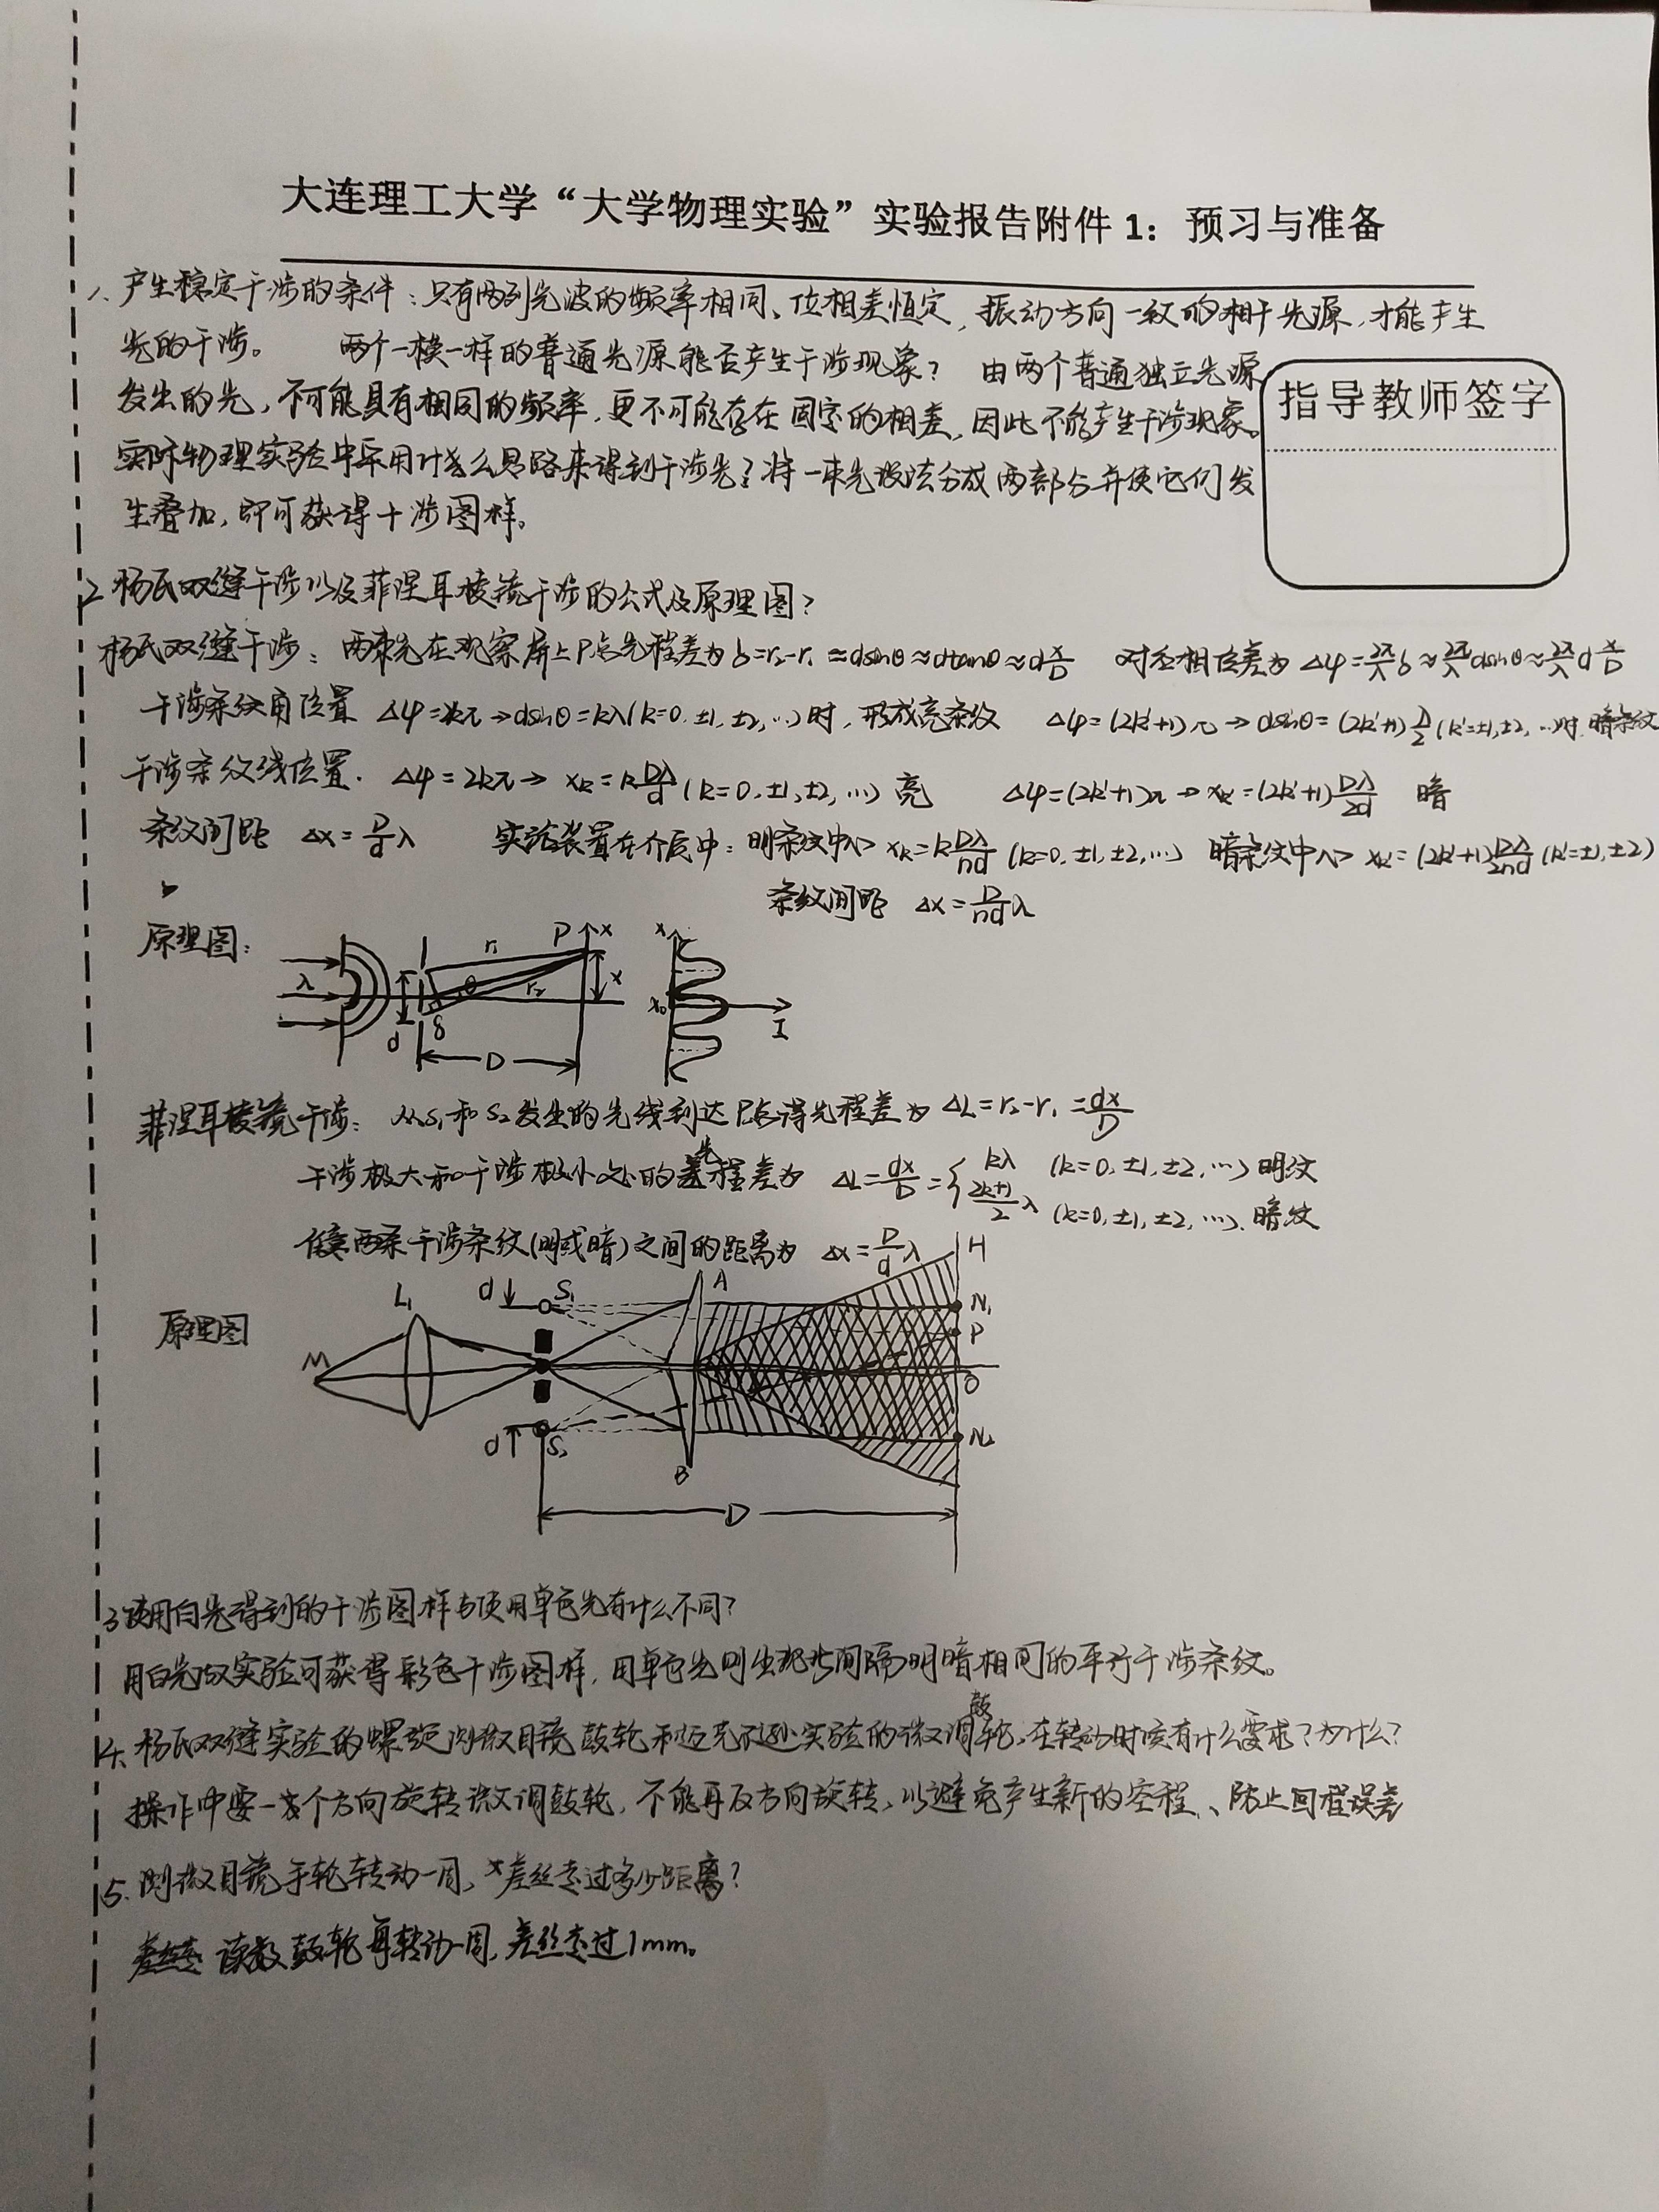 大连理工大学“大学物理实验”实验报告附件 1：预习与准备
1、产生稳定干涉的条件：只有两列光波的频率相同、位相差恒定，振动方向一致的相干光源，才能产生
光的干涉。 两个一模一样的普通光源能否产生干涉现象？ 由两个普通独立光源
发出的光，不可能具有相同的频率，更不可能存在固定的相差，因此不能产生干涉现象。
指导教师签字
实际物理实验中采用什么思路来得到干涉光？将一束光设法分成两部分并使它们发
生叠加，即可获得干涉图样。
2 杨氏双缝干涉以及菲涅耳棱镜干涉的公式及原理图？
杨氏双缝干涉：两束光在观察屏上P点光程差为 δ=r₂-r₁≈dsinθ≈dtanθ≈d x/D 对应相位差为 Δφ=2π/λ δ≈2π/λ dsinθ≈2π/λ d x/D
干涉条纹角位置 Δφ=2kπ→dsinθ=kλ(k=0,±1,±2,…)时，形成亮条纹 Δφ=(2k'+1)π→dsinθ=(2k'+1)λ/2(k'=±1,±2,…)时 暗条纹
干涉条纹线位置. Δφ=2kπ→ xₖ=k Dλ/d (k=0,±1,±2,…) 亮 Δφ=(2k'+1)π→xₖ'=(2k'+1)Dλ/2d 暗
条纹间距 Δx=D/d λ 实验装置在介质中：明条纹中心 xₖ=k Dλ/nd (k=0,±1,±2,…) 暗条纹中心 xₖ'=(2k'+1)Dλ/2nd (k'=±1,±2)
条纹间距 Δx=D/nd λ
原理图：
λ d δ θ r₁ r₂ P x x D
x x₀ I
菲涅耳棱镜干涉：从S₁和S₂发出的光线到达P点得光程差为 ΔL=r₂-r₁=dx/D
干涉极大和干涉极小处的光程差为 ΔL=dx/D={kλ (k=0,±1,±2,…) 明纹
(2k+1)/2 λ (k=0,±1,±2,…). 暗纹
两条干涉条纹(明或暗)之间的距离为 Δx=D/d λ
原理图
M L₁ d S₁ d S₂ A B H N₁ P O N₂ D
3 使用白光得到的干涉图样与使用单色光有什么不同？
用白光做实验可获得彩色干涉图样，用单色光则出现间隔明暗相间的平行干涉条纹。
4. 杨氏双缝实验的螺旋测微目镜鼓轮和迈克尔逊实验的微调鼓轮，在转动时候有什么要求？为什么？
操作中要一个方向旋转微调鼓轮，不能再反方向旋转，以避免产生新的空程、防止回程误差
5. 测微目镜手轮转动一周，叉丝走过多少距离？
读数鼓轮每转动一周，差丝走过1mm。